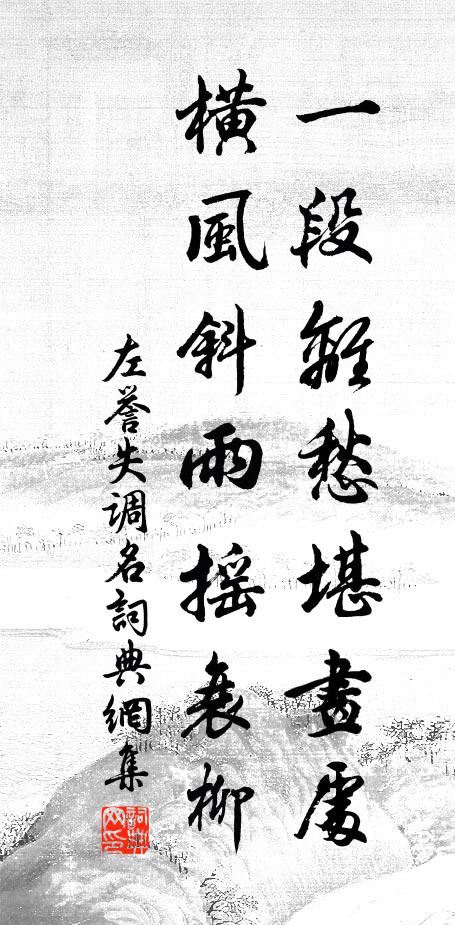 一段離愁堪畫處
橫風斜雨搖衰柳
左譽失调名詞典網集